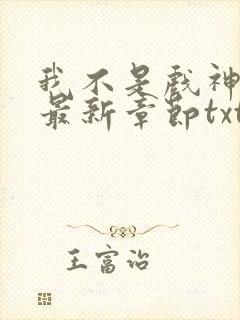 我不是戏神
最新章节txt
王富治